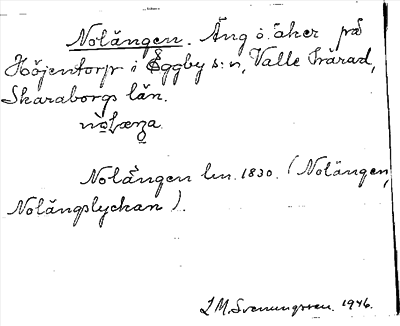 Nolängen. Äng o. åker på
Höjentorp i Eggby s:n, Valle härad,
Skaraborgs län.
Nolängen ln. 1830. (Nolängen,
Nolängslyckan).
L M. Svenungsson. 1946.